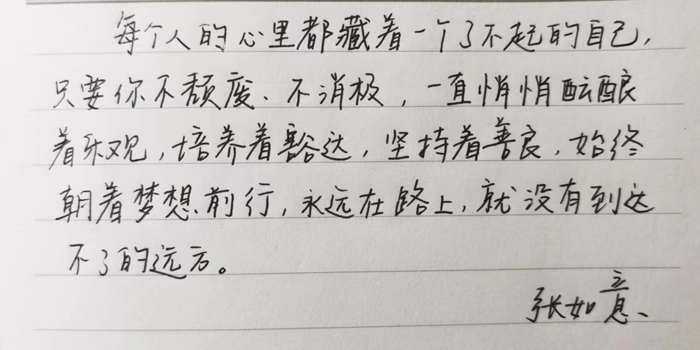 每个人的心里都藏着一个了不起的自己，
只要你不颓废、不消极，一直悄悄酝酿
着乐观，培养着豁达，坚持着善良，始终
朝着梦想前行，永远在路上，就没有到达
不了的远方。
张如意、